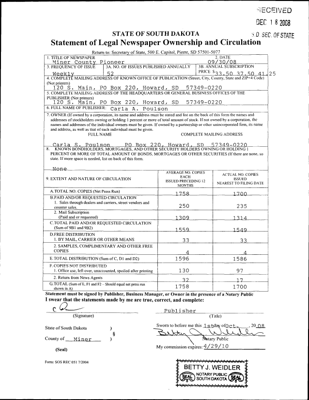 RECEIVED
DEC 16 2008
SD SEC OF STATE
STATE OF SOUTH DAKOTA
Statement of Legal Newspaper Ownership and Circulation
Return to: Secretary of State, 500 E. Capitol, Pierre, SD 57501-5077
1. TITLE OF NEWSPAPER
Miner County Pioneer
2. DATE
09/30/08
3. FREQUENCY OF ISSUE
Weekly
3A. NO. OF ISSUES PUBLISHED ANNUALLY
52
3B. ANNUAL SUBSCRIPTION
PRICE $33.50 37.50 41.25
4. COMPLETE MAILING ADDRESS OF KNOWN OFFICE OF PUBLICATION (Street, City, County, State and ZIP+4 Code)
(Not printers)
120 S. Main, PO Box 220, Howard, SD 57349-0220
5. COMPLETE MAILING ADDRESS OF THE HEADQUARTERS OR GENERAL BUSINESS OFFICES OF THE
PUBLISHER (Not printers)
120 S. Main, PO Box 220, Howard, SD 57349-0220
6. FULL NAME OF PUBLISHER:
Carla A. Poulson
7. OWNER (If owned by a corporation, its name and address must be stated and
FULL NAME
COMPLETE MAILING ADDRESS
Carla S. Poulson PO Box 220, Howard, SD 57349-0220
8. KNOWN BONDHOLDERS, MORTGAGES, AND OTHER SECURITY HOLDERS OWNING OR HOLDING 1
PERCENT OR MORE OF TOTAL AMOUNT OF BONDS, MORTGAGES OR OTHER SECURITIES (If there are none, so
state. If more space is needed, list on back of this form.
None
9. EXTENT AND NATURE OF CIRCULATION
AVERAGE NO. COPIES
EACH
ISSUED PRECEDING 12
MONTHS
ACTUAL NO. COPIES
ISSUED
NEAREST TO FILING DATE
A. TOTAL NO. COPIES (Net Press Run)
1758
1700
B. PAID AND/OR REQUESTED CIRCULATION
1. Sales through dealers and carriers, street vendors and
counter sales
250
235
2. Mail Subscription
(Paid and or requested)
1309
1314
C. TOTAL PAID AND/OR REQUESTED CIRCULATION
(Sum of 9B1 and 9B2)
1559
1549
D. FREE DISTRIBUTION
1. BY MAIL, CARRIER OR OTHER MEANS
33
33
2. SAMPLES, COMPLIMENTARY AND OTHER FREE
COPIES
4
4
E. TOTAL DISTRIBUTION (Sum of C, D1 and D2)
1596
1586
F. COPIES NOT DISTRIBUTED
1. Office use, left over, unaccounted, spoiled after printing
130
97
2. Return from News Agents
32
17
G. TOTAL (Sum of E, F1 and F2 - Should equal net press run
shown in A)
1758
1700
Statement must be signed by Publisher, Business Manager, or Owner in the presence of a Notary Public
I swear that the statements made by me are true, correct, and complete:
Publisher
(Signature)
(Title)
State of South Dakota )
County of Miner )
§
(Seal)
Sworn to before me this 1st day of Oct. 20 08
Betty J. Weidler
Notary Public
My commission expires: 4/29/10
BETTY J. WEIDLER
SEAL NOTARY PUBLIC SEAL
SOUTH DAKOTA